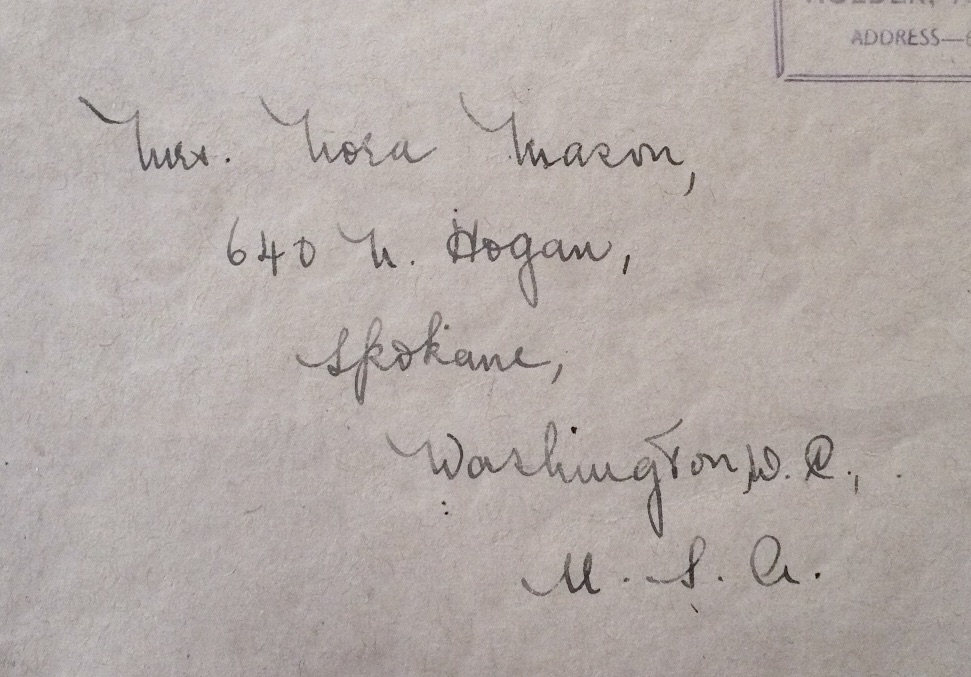 ADDRESS—
Mrs. Nora Mason,
640 N. Hogan,
Spokane,
Washington, D. C.,
U. S. A.